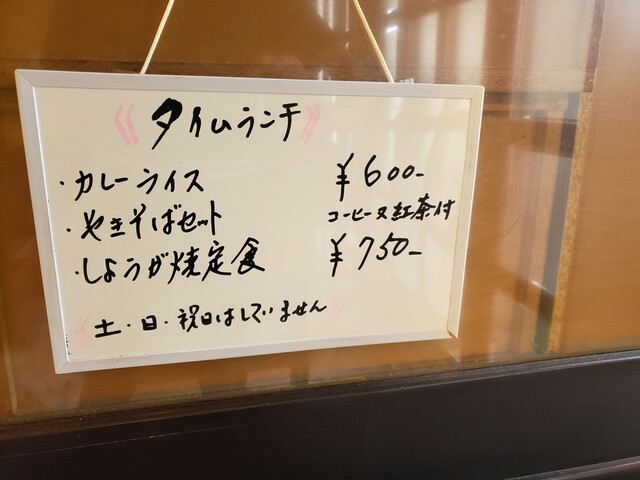 《タイムランチ》
・カレーライス ¥600-
・やきそばセット コーヒー又紅茶付
・しょうが焼定食 ¥750-
《土・日・祝日はしていません》